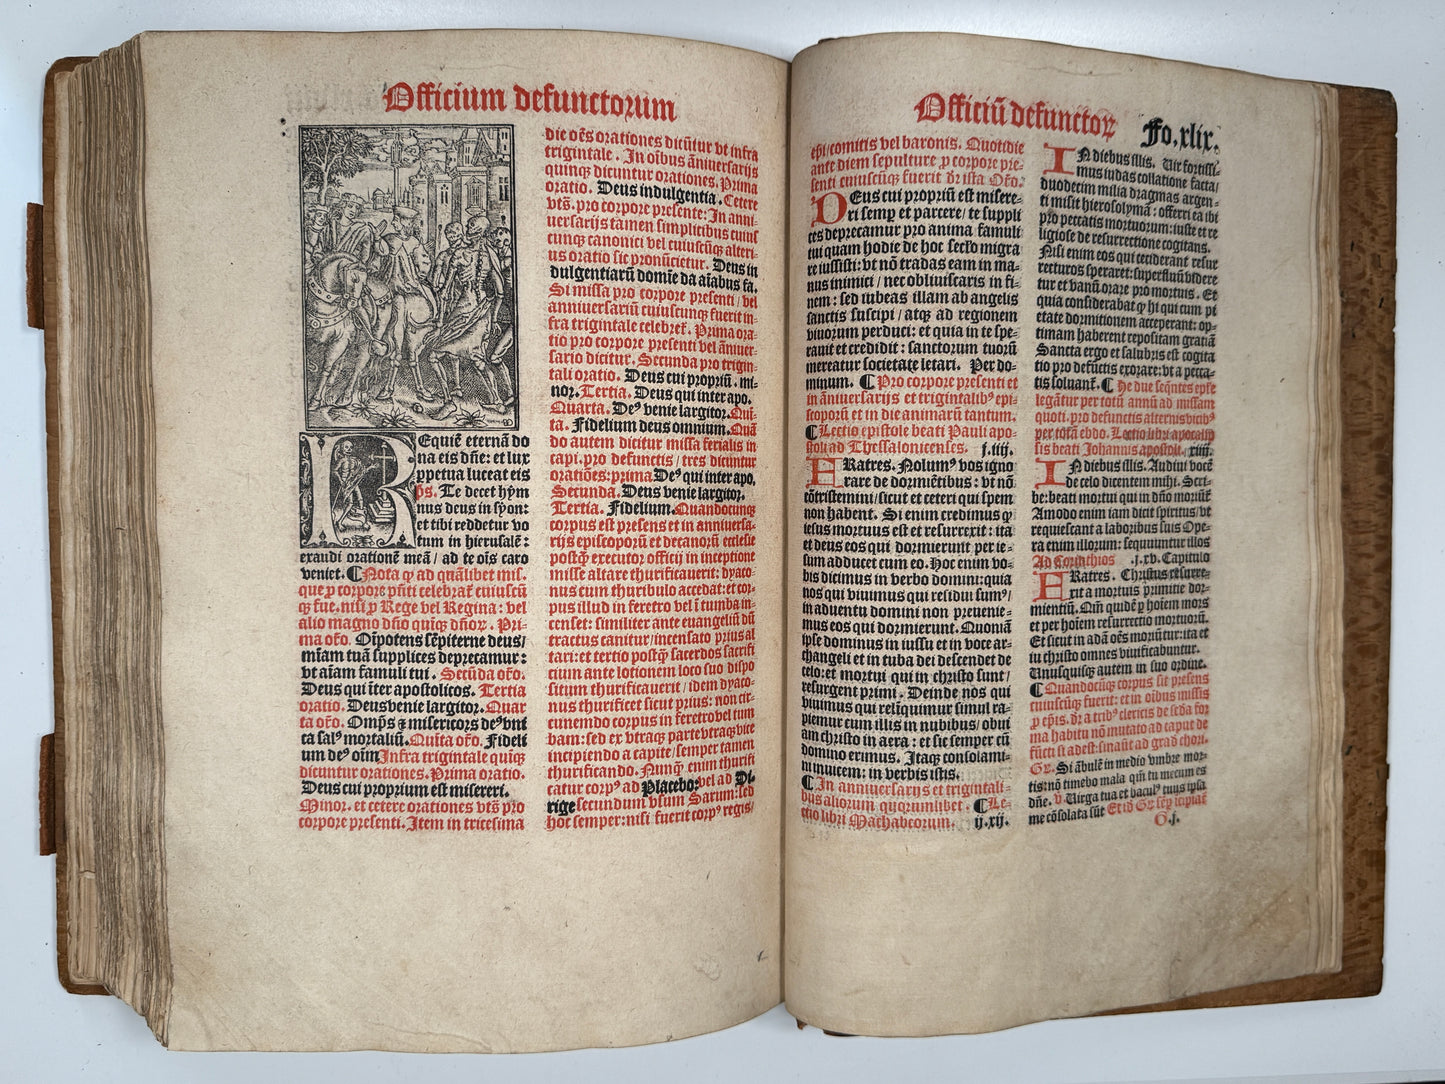 Officium defunctorum
Requiē eternā do
na eis dñe: et lux
ꝑpetua luceat eis
p̄s. Te decet hym̄
nus deus in syon:
et tibi reddetur vo
tum in hierusalē:
exaudi orationē meā / ad te oīs caro
veniet. ¶ Nota ꝙ ad quālibet mis⸗
que ꝓ corpore pn̄ti celebrat̄ cuiuscū
qꝫ fue. nisi ꝓ Rege vel Regina: vel
alio magno dño quīqꝫ dñoꝝ. Pri⸗
ma or̄o. Oīpotens sēpiterne deus /
mīam tuā supplices deprecamur:
vt aīam famuli tui. Secūda or̄o.
Deus qui īter apostolicos. Tertia
oratio. Deus venie largitor. Quar
ta or̄o. Omp̄s ⁊ misericors deꝰ vni
ca salꝰ mortaliū. Quīta or̄o. Fideli
um deꝰ oīm Infra trigintale quīqꝫ
dicuntur orationes. Prima oratio.
Deus cui proprium est misereri.
Minor. et cetere orationes vts̄ pro
corpore presenti. Item in tricesima
die oēs orationes dicūtur vt infra
trigintale. In oībus āniuersarijs
quinqꝫ dicuntur orationes. Prima
oratio. Deus indulgentia. Cetere
vts̄. pro corpore presente: In anni⸗
uersarijs tamen simplicibus cuius
cunqꝫ canonici vel cuiuscūqꝫ alteri⸗
us oratio sic pronūcietur. Deus in
dulgentiarū domīe da aīabus fa.
Si missa pro corpore presenti / vel
anniuersariū cuiuscunqꝫ fuerit in⸗
fra trigintale celebret̄. Prima ora⸗
tio pro corpore presenti vel āniuer⸗
sario dicitur. Secunda pro trigin⸗
tali oratio. Deus cui propriū. mi⸗
nor. Tertia. Deus qui inter apo.
Quarta. Deꝰ venie largitor. Qui⸗
ta. Fidelium deus omnium. Quā
do autem dicitur missa ferialis in
capi. pro defunctis / tres dicūtur
orationes: prima Deꝰ qui inter apo.
Secunda. Deus venie largitor.
Tertia. Fidelium. Quandocunqꝫ
corpus est presens et in anniuersa⸗
rijs episcoporū et decanorū ecclesie
postꝙ executor officij in inceptione
misse altare thurificauerit: dyaco⸗
nus cum thuribulo accedat: et cor⸗
pus illud in feretro vel ī tumba in⸗
censet: similiter ante euangeliū dū
tractus canitur / incensato prius al
tari: et tertio postꝙ sacerdos sacrifi
cium ante lotionem loco suo dispo
situm thurificauerit / idem dyaco⸗
nus thurificet sicut prius: non cir⸗
cunemdo corpus in feretro vel tum
bam: sed ex vtraqꝫ parte vtraqꝫ vice
incipiendo a capite / semper tamen
thurificando. Nunꝙ̄ enim thurifi
catur corpꝰ ad Placebo: vel ad Di⸗
rige secundum vsum Sarum: sed
hoc semper: nisi fuerit corpꝰ regis /
Officiū defunctoꝝ
Fo. xlix.
ep̄i / comitis vel baronis. Quotidie
ante diem sepulture ꝓ corpore pre⸗
senti cuiuscūqꝫ fuerit dr̄ ista Or̄o.
DEus cui propriū est misere⸗
ri semꝑ et parcere / te suppli
ces deprecamur pro anima famuli
tui quam hodie de hoc sec̄lo migra
re iussisti: vt nō tradas eam in ma⸗
nus inimici / nec obliuiscaris in fi⸗
nem: sed iubeas illam ab angelis
sanctis suscipi / atqꝫ ad regionem
viuorum perduci: et quia in te spe⸗
rauit et credidit: sanctorum tuorū
mereatur societate letari. Per do⸗
minum. ¶ Pro corpore presenti et
in āniuersarijs et trigintalibꝰ epi⸗
scoporū et in die animarū tantum.
¶ Lectio epistole beati Pauli apo⸗
stoli ad Thessalonicenses. j. iiij.
FRatres. Nolumꝰ vos igno
rare de dormiētibus: vt nō
cōtristemini / sicut et ceteri qui spem
non habent. Si enim credimus ꝙ
iesus mortuus est et resurrexit: ita
et deus eos qui dormierunt per ie⸗
sum adducet cum eo. Hoc enim vo⸗
bis dicimus in verbo domini: quia
nos qui viuimus qui residui sumꝰ /
in aduentu domini non preuenie⸗
mus eos qui dormierunt. Quoniā
ipse dominus in iussu et in voce ar⸗
changeli et in tuba dei descendet de
celo: et mortui qui in christo sunt /
resurgent primi. Deinde nos qui
viuimus qui reliquimur simul ra⸗
piemur cum illis in nubibus / obui
am christo in aera: et sic semper cū
domino erimus. Itaqꝫ consolami⸗
ni inuicem: in verbis istis.
¶ In anniuersarijs et trigintali⸗
bus aliorum quorumlibet. ¶ Le⸗
ctio libri Machabeorum. ij. xij.
IN diebus illis. Vir fortissi⸗
mus iudas collatione facta /
duodecim milia dragmas argen⸗
ti misit hierosolymā: offerri ea ibi
pro peccatis mortuorum: iuste et re
ligiose de resurrectione cogitans.
Nisi enim eos qui ceciderant resur
recturos speraret: superfluū videre
tur et vanū orare pro mortuis. Et
quia considerabat ꝙ hi qui cum pi
etate dormitionem acceperant: op⸗
timam haberent repositam gratiā
Sancta ergo et salubris est cogita
tio pro defūctis exorare: vt a pecca⸗
tis soluant̄. ¶ He due seq̄ntes ep̄le
legātur per totū annū ad missam
quoti. pro defunctis alternis vicibꝰ
per totā ebdo. Lectio libri apocalip
sis beati Johannis apostoli. xiiij.
IN diebus illis. Audiui vocē
de celo dicentem mihi. Scri⸗
be: beati mortui qui in dño moriūt̄
Amodo enim iam dicit spiritus / vt
requiescant a laboribus suis Ope⸗
ra enim illorum: sequuntur illos
Ad Corinthios .j. xv. Capitulo
FRatres. Christus resurre⸗
xit a mortuis primitie dor⸗
mientiū. Qm̄ quidē ꝑ hoīem mors
et per hoīem resurrectio mortuorū.
Et sicut in adā oēs moriūtur: ita et
in christo omnes viuificabuntur.
Vnusquisqꝫ autem in suo ordine.
¶ Quandocūqꝫ corpus sit presens
cuiuscūqꝫ fuerit: et in oībus missis
ꝓ ep̄is. dr̄ a tribꝰ clericis de sc̄da for
ma habitu nō mutato ad caput de
fūcti si adest: sināūt ad grad̄ chori.
Gr̄. Si ābulē in medio vmbre mor⸗
tis: nō timebo mala qm̄ tu mecum es
dñe. v. Virga tua et baculꝰ tuus ipsa
me cōsolata sūt Et id Gr̄ sēꝑ īcipiat̄
G. j.